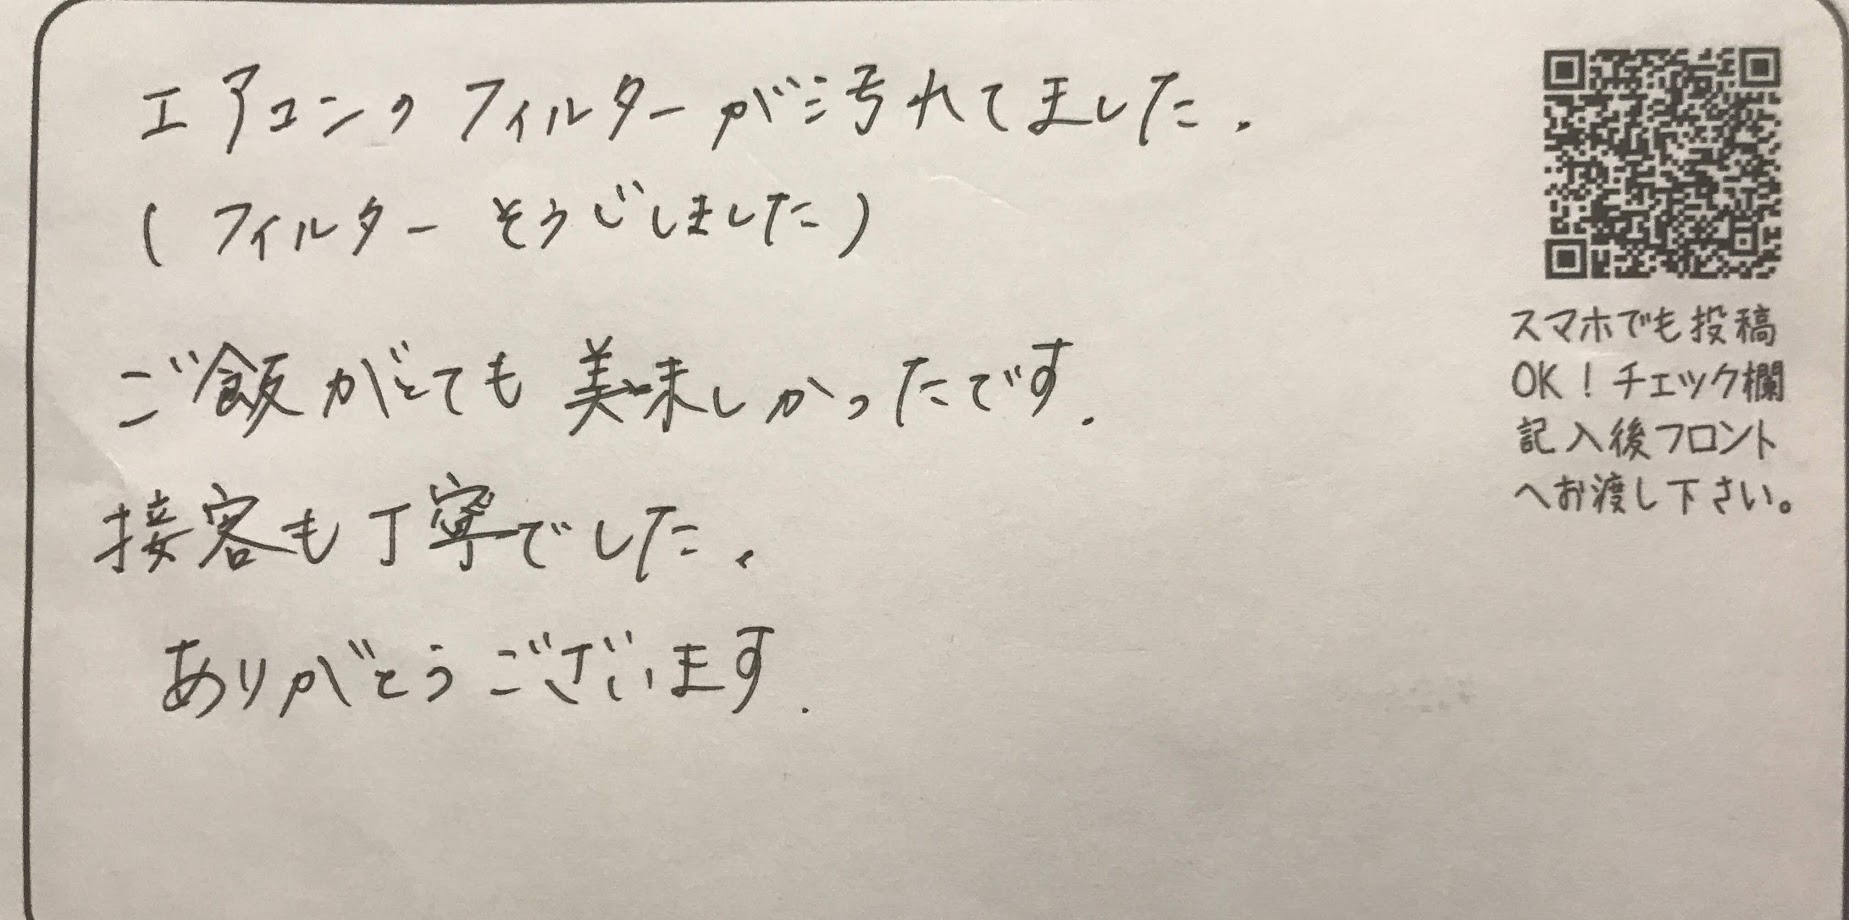 エアコンのフィルターが汚れてました.
(フィルターそうじしました)
ご飯がとても美味しかったです.
接客も丁寧でした.
ありがとうございます.
スマホでも投稿
OK！チェック欄
記入後フロント
へお渡し下さい。